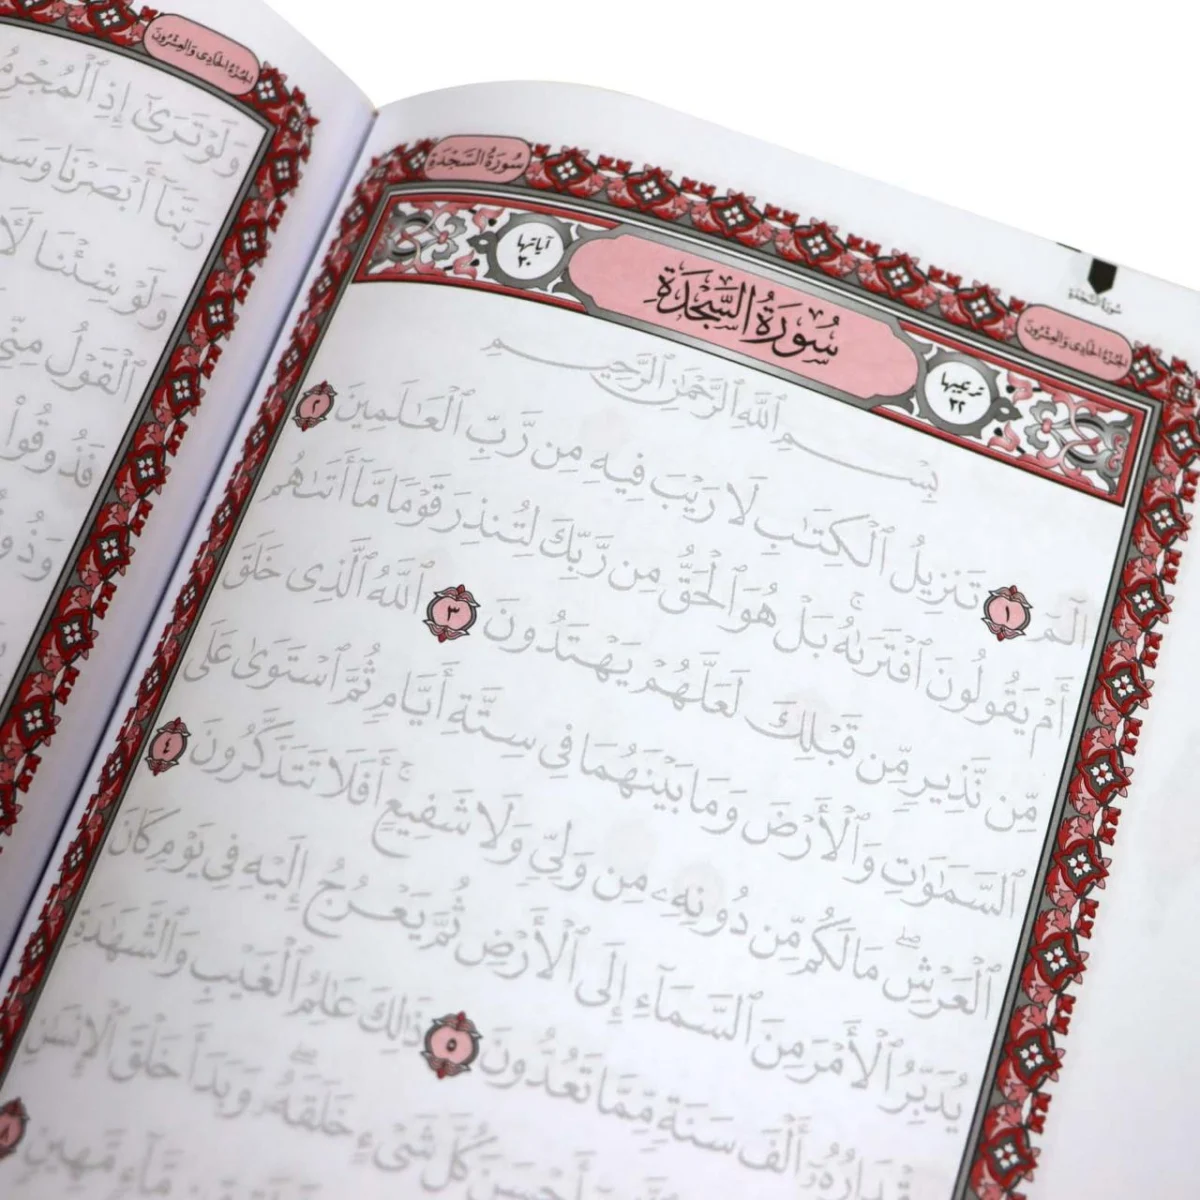 سُورَةُ السَّجْدَةِ
الجُزْءُ الحَادِى وَالعِشْرُونَ
سُورَةُ السَّجْدَةِ
ترتيبها ٣٢
سُورَةُ السَّجْدَةِ
آياتها ٣٠
بِسْمِ ٱللَّهِ ٱلرَّحْمَٰنِ ٱلرَّحِيمِ
الٓمٓ ١ تَنزِيلُ ٱلْكِتَٰبِ لَا رَيْبَ فِيهِ مِن رَّبِّ ٱلْعَٰلَمِينَ ٢
أَمْ يَقُولُونَ ٱفْتَرَىٰهُ ۚ بَلْ هُوَ ٱلْحَقُّ مِن رَّبِّكَ لِتُنذِرَ قَوْمًا مَّآ أَتَىٰهُم
مِّن نَّذِيرٍ مِّن قَبْلِكَ لَعَلَّهُمْ يَهْتَدُونَ ٣ ٱللَّهُ ٱلَّذِى خَلَقَ
ٱلسَّمَٰوَٰتِ وَٱلْأَرْضَ وَمَا بَيْنَهُمَا فِى سِتَّةِ أَيَّامٍ ثُمَّ ٱسْتَوَىٰ عَلَى
ٱلْعَرْشِ ۖ مَا لَكُم مِّن دُونِهِۦ مِن وَلِىٍّ وَلَا شَفِيعٍ ۚ أَفَلَا تَتَذَكَّرُونَ ٤
يُدَبِّرُ ٱلْأَمْرَ مِنَ ٱلسَّمَآءِ إِلَى ٱلْأَرْضِ ثُمَّ يَعْرُجُ إِلَيْهِ فِى يَوْمٍ كَانَ
مِقْدَارُهُۥٓ أَلْفَ سَنَةٍ مِّمَّا تَعُدُّونَ ٥ ذَٰلِكَ عَٰلِمُ ٱلْغَيْبِ وَٱلشَّهَٰدَةِ
أَحْسَنَ كُلَّ شَىْءٍ خَلَقَهُۥ ۖ وَبَدَأَ خَلْقَ ٱلْإِنسَٰنِ
مَّآءٍ مَّهِينٍ ٨
الجُزْءُ الحَادِى وَالعِشْرُونَ
وَلَوْ تَرَىٰٓ إِذِ ٱلْمُجْرِمُ
رَبَّنَآ أَبْصَرْنَا وَسَ
وَلَوْ شِئْنَا لَأَ
ٱلْقَوْلُ مِنِّى
فَذُوقُوا۟
وَذُو